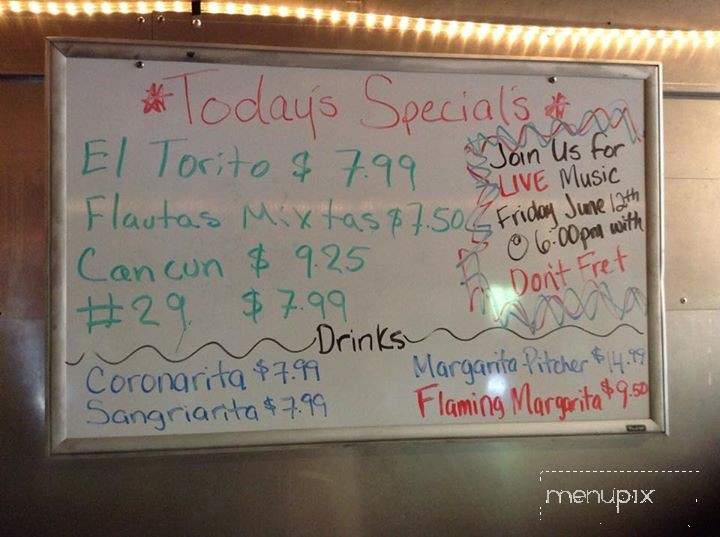 Today's Special's
El Torito $ 7.99
Flautas Mixtas $7.50
Cancun $ 9.25
#29 $7.99
Join Us for
LIVE Music
Friday June 12th
@ 6:00pm with
Don't Fret
Drinks
Coronarita $7.99
Sangriarita $7.99
Margarita Pitcher $14.99
Flaming Margarita $9.50
menupix